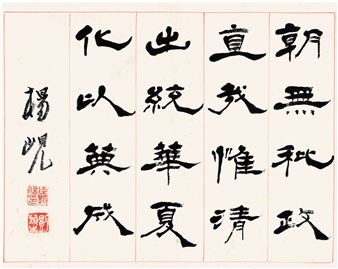 朝無秕政
直哉惟清
出統華夏
化以典成
楊峴